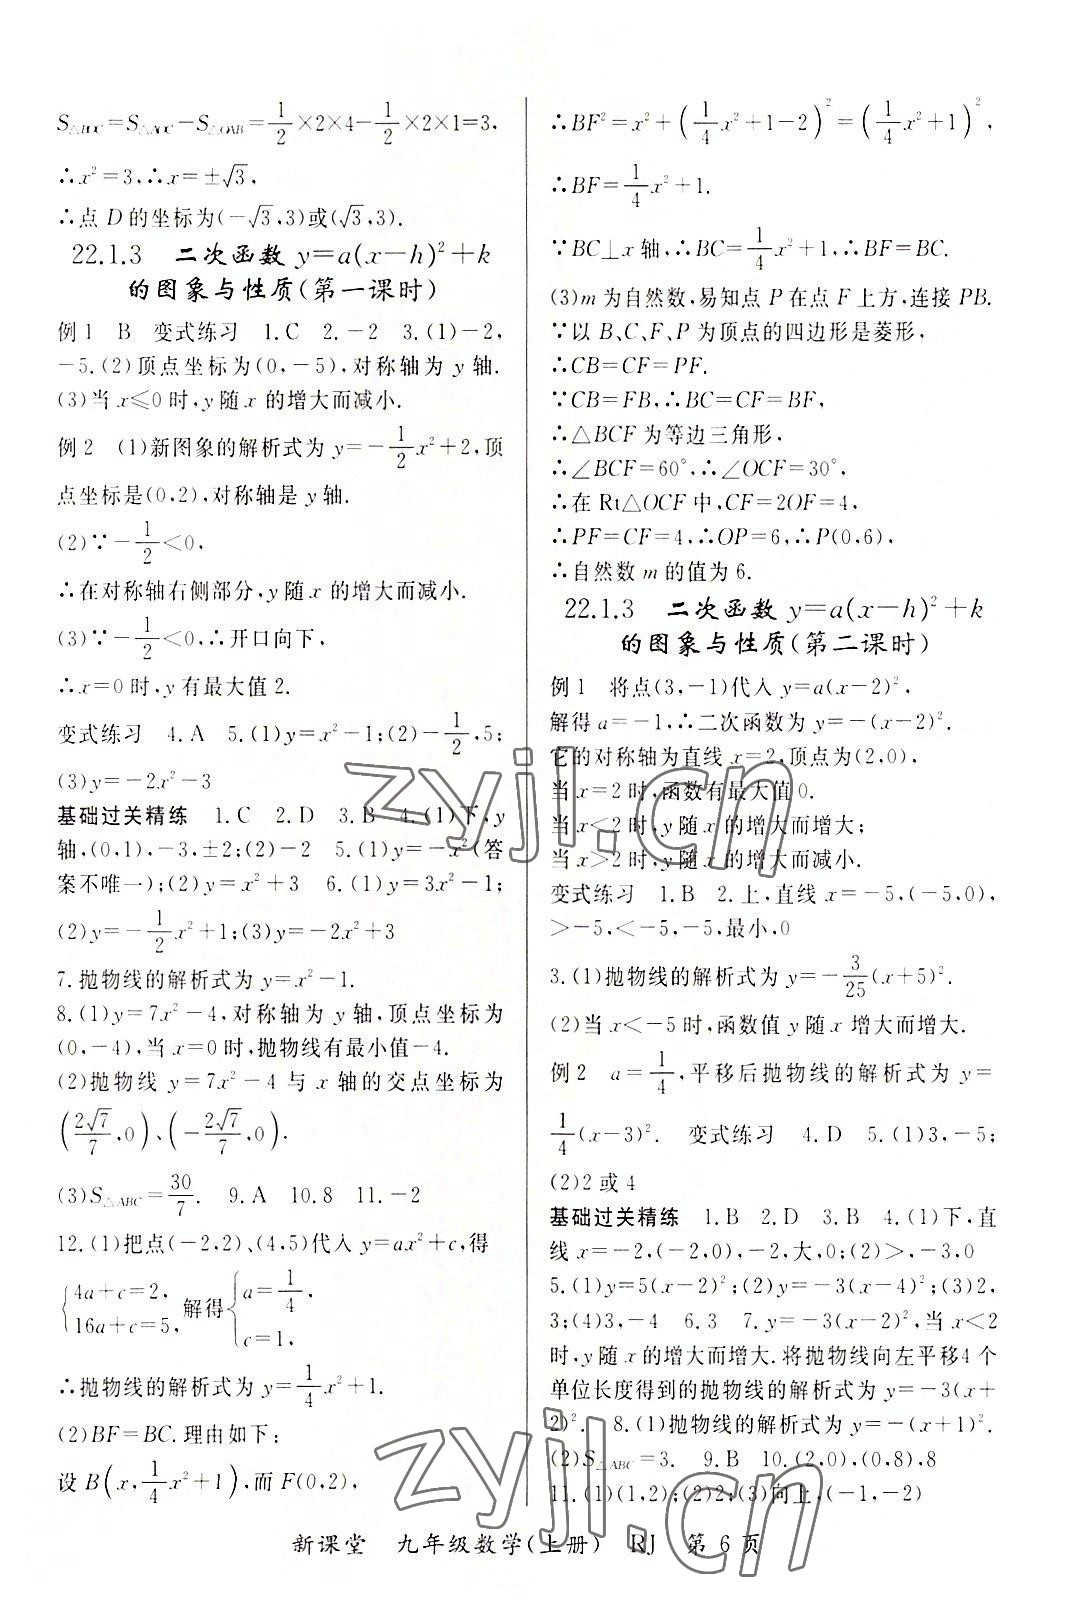 S△BDC=S△AOC−S△OAB=1/2×2×4−1/2×2×1=3,
∴x²=3,∴x=±√3,
∴点 D 的坐标为(−√3,3)或(√3,3).
22.1.3 二次函数 y=a(x−h)²+k
的图象与性质(第一课时)
例1 B 变式练习 1.C 2.−2 3.(1)−2,
−5.(2)顶点坐标为(0,−5),对称轴为 y 轴.
(3)当 x⩽0 时,y 随 x 的增大而减小.
例2 (1)新图象的解析式为 y=−1/2x²+2,顶
点坐标是(0,2),对称轴是 y 轴.
(2)∵−1/2<0,
∴在对称轴右侧部分,y 随 x 的增大而减小.
(3)∵−1/2<0,∴开口向下,
∴x=0 时,y 有最大值2.
变式练习 4.A 5.(1)y=x²−1;(2)−1/2,5;
(3)y=−2x²−3
基础过关精练 1.C 2.D 3.B 4.(1)下,y
轴,(0,1),−3,±2;(2)−2 5.(1)y=−x²(答
案不唯一);(2)y=x²+3 6.(1)y=3x²−1;
(2)y=−1/2x²+1;(3)y=−2x²+3
7.抛物线的解析式为 y=x²−1.
8.(1)y=7x²−4,对称轴为 y 轴,顶点坐标为
(0,−4),当 x=0 时,抛物线有最小值−4.
(2)抛物线 y=7x²−4 与 x 轴的交点坐标为
(2√7/7,0)、(−2√7/7,0).
(3)S△ABC=30/7. 9.A 10.8 11.−2
12.(1)把点(−2,2)、(4,5)代入 y=ax²+c,得
{4a+c=2, 16a+c=5, 解得{a=1/4, c=1,
∴抛物线的解析式为 y=1/4x²+1.
(2)BF=BC.理由如下:
设 B(x,1/4x²+1),而 F(0,2),
∴BF²=x²+(1/4x²+1−2)²=(1/4x²+1)²,
∴BF=1/4x²+1.
∵BC⊥x 轴,∴BC=1/4x²+1,∴BF=BC.
(3)m 为自然数,易知点 P 在点 F 上方,连接 PB.
∵以 B、C、F、P 为顶点的四边形是菱形,
∴CB=CF=PF.
∵CB=FB,∴BC=CF=BF,
∴△BCF 为等边三角形,
∴∠BCF=60°,∴∠OCF=30°,
∴在 Rt△OCF 中,CF=2OF=4,
∴PF=CF=4,∴OP=6,∴P(0,6),
∴自然数 m 的值为 6.
22.1.3 二次函数 y=a(x−h)²+k
的图象与性质(第二课时)
例1 将点(3,−1)代入 y=a(x−2)²,
解得 a=−1,∴二次函数为 y=−(x−2)².
它的对称轴为直线 x=2,顶点为(2,0),
当 x=2 时,函数有最大值 0.
当 x<2 时,y 随 x 的增大而增大;
当 x>2 时,y 随 x 的增大而减小.
变式练习 1.B 2.上,直线 x=−5,(−5,0),
>−5,<−5,−5,最小,0
3.(1)抛物线的解析式为 y=−3/25(x+5)².
(2)当 x<−5 时,函数值 y 随 x 增大而增大.
例2 a=1/4,平移后抛物线的解析式为 y=
1/4(x−3)². 变式练习 4.D 5.(1)3,−5;
(2)2或4
基础过关精练 1.B 2.D 3.B 4.(1)下,直
线 x=−2,(−2,0),−2,大,0;(2)>,−3,0
5.(1)y=5(x−2)²;(2)y=−3(x−4)²;(3)2,
3;(4)3,−4 6.3 7.y=−3(x−2)²,当 x<2
时,y 随 x 的增大而增大.将抛物线向左平移4 个
单位长度得到的抛物线的解析式为 y=−3(x+
2)². 8.(1)抛物线的解析式为 y=−(x+1)².
(2)S△ABC=3. 9.B 10.(2,0),(0,8),8
11.(1)(1,2);(2)2;(3)向上,(−1,−2)
新课堂 九年级数学(上册) RJ 第 6 页
zyjl.cn
zyjl.cn